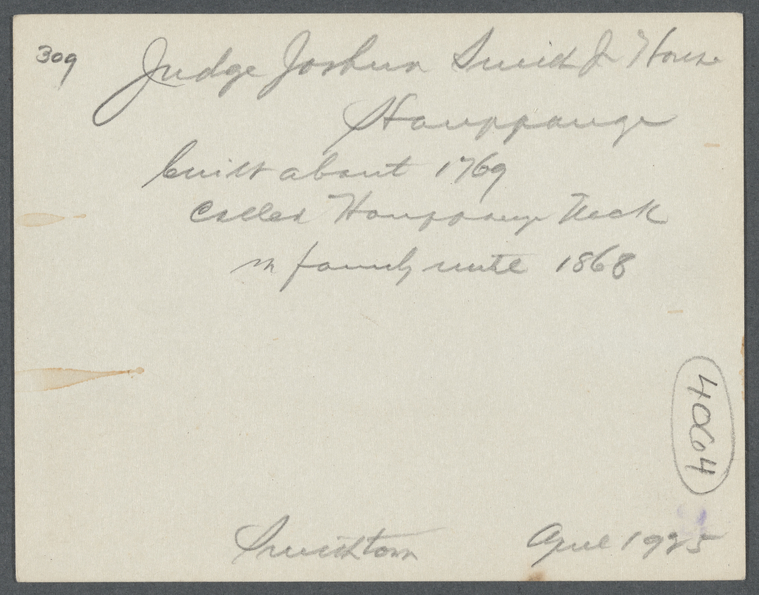 309
Judge Joshua Smith Jr House
Hauppauge
built about 1769
Called Hauppauge Neck
in family until 1868
4064
Smithtown April 1925